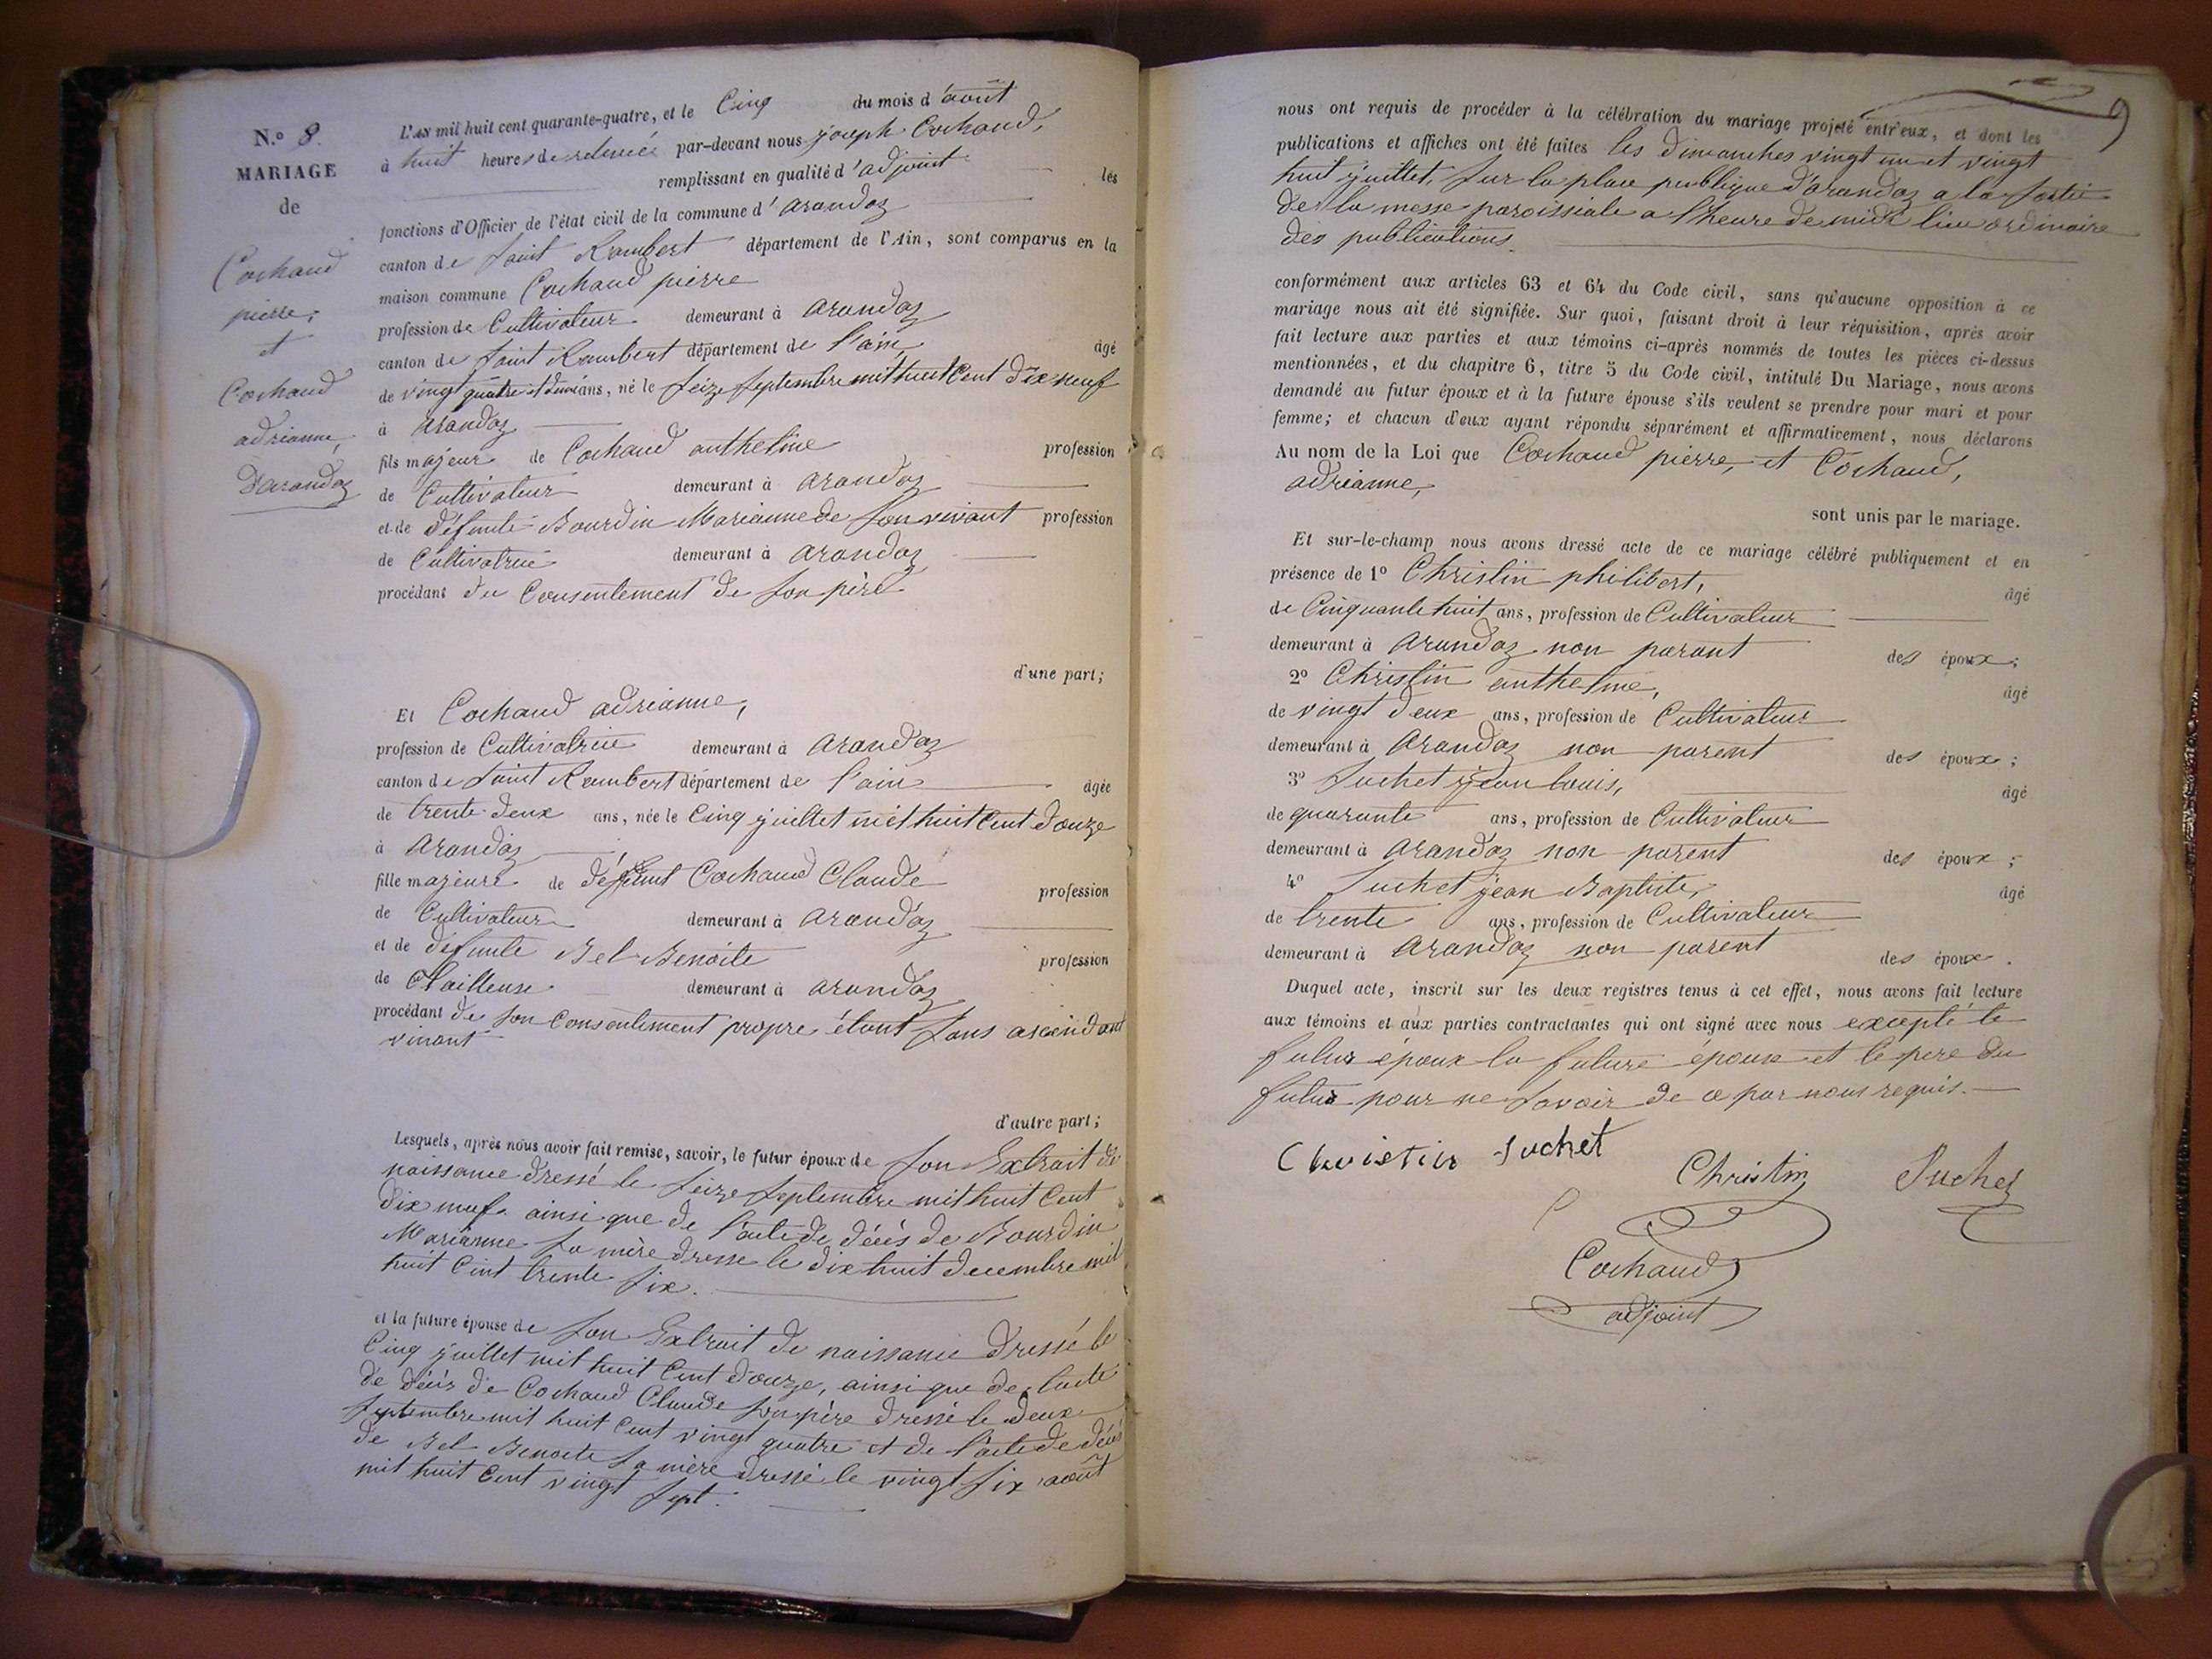 N.º 8.
MARIAGE
de
Cochaud
pierre,
et
Cochaud
adrianne,
D'arandaz
L'AN mil huit cent quarante-quatre, et le Cinq du mois d'août
à huit heures de relevée par-devant nous joseph Cochaud,
remplissant en qualité d'adjoint les
fonctions d'Officier de l'état civil de la commune d'arandaz
canton de Saint Rambert département de l'Ain, sont comparus en la
maison commune Cochaud pierre
profession de Cultivateur demeurant à arandaz
canton de Saint Rambert département de l'ain, âgé
de vingt quatre et demi ans, né le Seize Septembre mil huit Cent dix neuf
à arandaz
fils majeur de Cochaud anthelme profession
de Cultivateur demeurant à arandaz
et de défunte Bourdin Marianne de son vivant profession
de Cultivatrice demeurant à arandaz
procédant du Consentement de son père
d'une part;
Et Cochaud adrianne,
profession de Cultivatrice demeurant à arandaz
canton de Saint Rambert département de l'ain âgée
de trente deux ans, née le Cinq juillet mil huit Cent douze
à arandaz
fille majeure de défunt Cochaud Claude profession
de Cultivateur demeurant à arandaz
et de défunte Bel Benoite profession
de Tailleuse demeurant à arandaz
procédant de son Consentement propre étant sans ascendant
vivant
d'autre part;
Lesquels, après nous avoir fait remise, savoir, le futur époux de son Extrait de
naissance dressé le Seize Septembre mil huit Cent
dix neuf. ainsi que de l'acte de décès de Bourdin
Marianne sa mère dressé le dix huit decembre mil
huit Cent trente six.
et la future épouse de son Extrait de naissance dressé le
Cinq juillet mil huit Cent douze, ainsi que de l'acte
de décès de Cochaud Claude son père dressé le deux
Septembre mil huit Cent vingt quatre et de l'acte de décès
de Bel Benoite sa mère dressé le vingt six août
mil huit Cent vingt sept.
9
nous ont requis de procéder à la célébration du mariage projeté entr'eux, et dont les
publications et affiches ont été faites les dimanches vingt un et vingt
huit juillet, sur la place publique d'arandaz a la sortie
de la messe paroissiale a l'heure de midi lieu ordinaire
des publications.
conformément aux articles 63 et 64 du Code civil, sans qu'aucune opposition à ce
mariage nous ait été signifiée. Sur quoi, faisant droit à leur réquisition, après avoir
fait lecture aux parties et aux témoins ci-après nommés de toutes les pièces ci-dessus
mentionnées, et du chapitre 6, titre 5 du Code civil, intitulé Du Mariage, nous avons
demandé au futur époux et à la future épouse s'ils veulent se prendre pour mari et pour
femme; et chacun d'eux ayant répondu séparément et affirmativement, nous déclarons
Au nom de la Loi que Cochaud pierre, et Cochaud,
adrianne,
sont unis par le mariage.
Et sur-le-champ nous avons dressé acte de ce mariage célébré publiquement et en
présence de 1º Christin philibert, âgé
de Cinquante huit ans, profession de Cultivateur
demeurant à arandaz non parant des époux;
2º Christin anthelme, âgé
de vingt deux ans, profession de Cultivateur
demeurant à arandaz non parent des époux;
3º Suchet jean louis, âgé
de quarante ans, profession de Cultivateur
demeurant à arandaz non parent des époux;
4º Suchet jean Baptiste, âgé
de trente ans, profession de Cultivateur
demeurant à arandaz non parent des époux.
Duquel acte, inscrit sur les deux registres tenus à cet effet, nous avons fait lecture
aux témoins et aux parties contractantes qui ont signé avec nous excepté le
futur époux la future épouse et le père du
futur pour ne savoir de ce par nous requis.
Christin Suchet Christin Suchet
Cochaud
adjoint